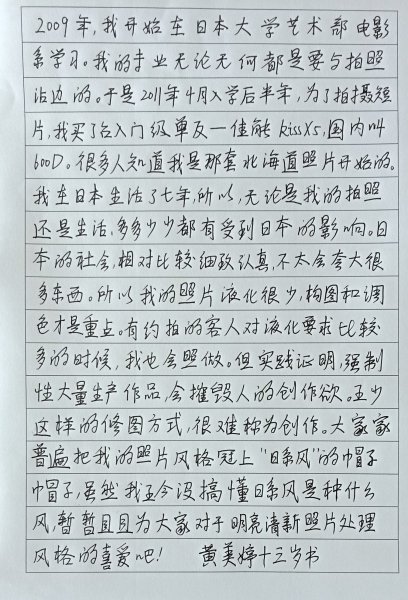 2009年,我开始在日本大学艺术部电影
系学习。我的专业无论无何都是要与拍照
沾边的。于是2011年4月入学后半年,为了拍摄短
片,我买了台入门级单反一佳能kissX5,国内叫
600D。很多人知道我是那套北海道照片开始的。
我在日本生活了七年,所以,无论是我的拍照
还是生活,多多少少都有受到日本的影响。日
本的社会,相对比较细致认真,不太会夸大很
多东西。所以我的照片液化很少,构图和调
色才是重点。有约拍的客人对液化要求比较
多的时候,我也会照做。但实践证明,强制
性大量生产作品,会摧毁人的创作欲。至少
这样的修图方式,很难称为创作。大家家
普遍把我的照片风格冠上"日系风"的帽子
帽子,虽然我至今没搞懂日系风是种什么
风,暂暂且且为大家对于明亮清新照片处理
风格的喜爱吧! 黄美婷十三岁书